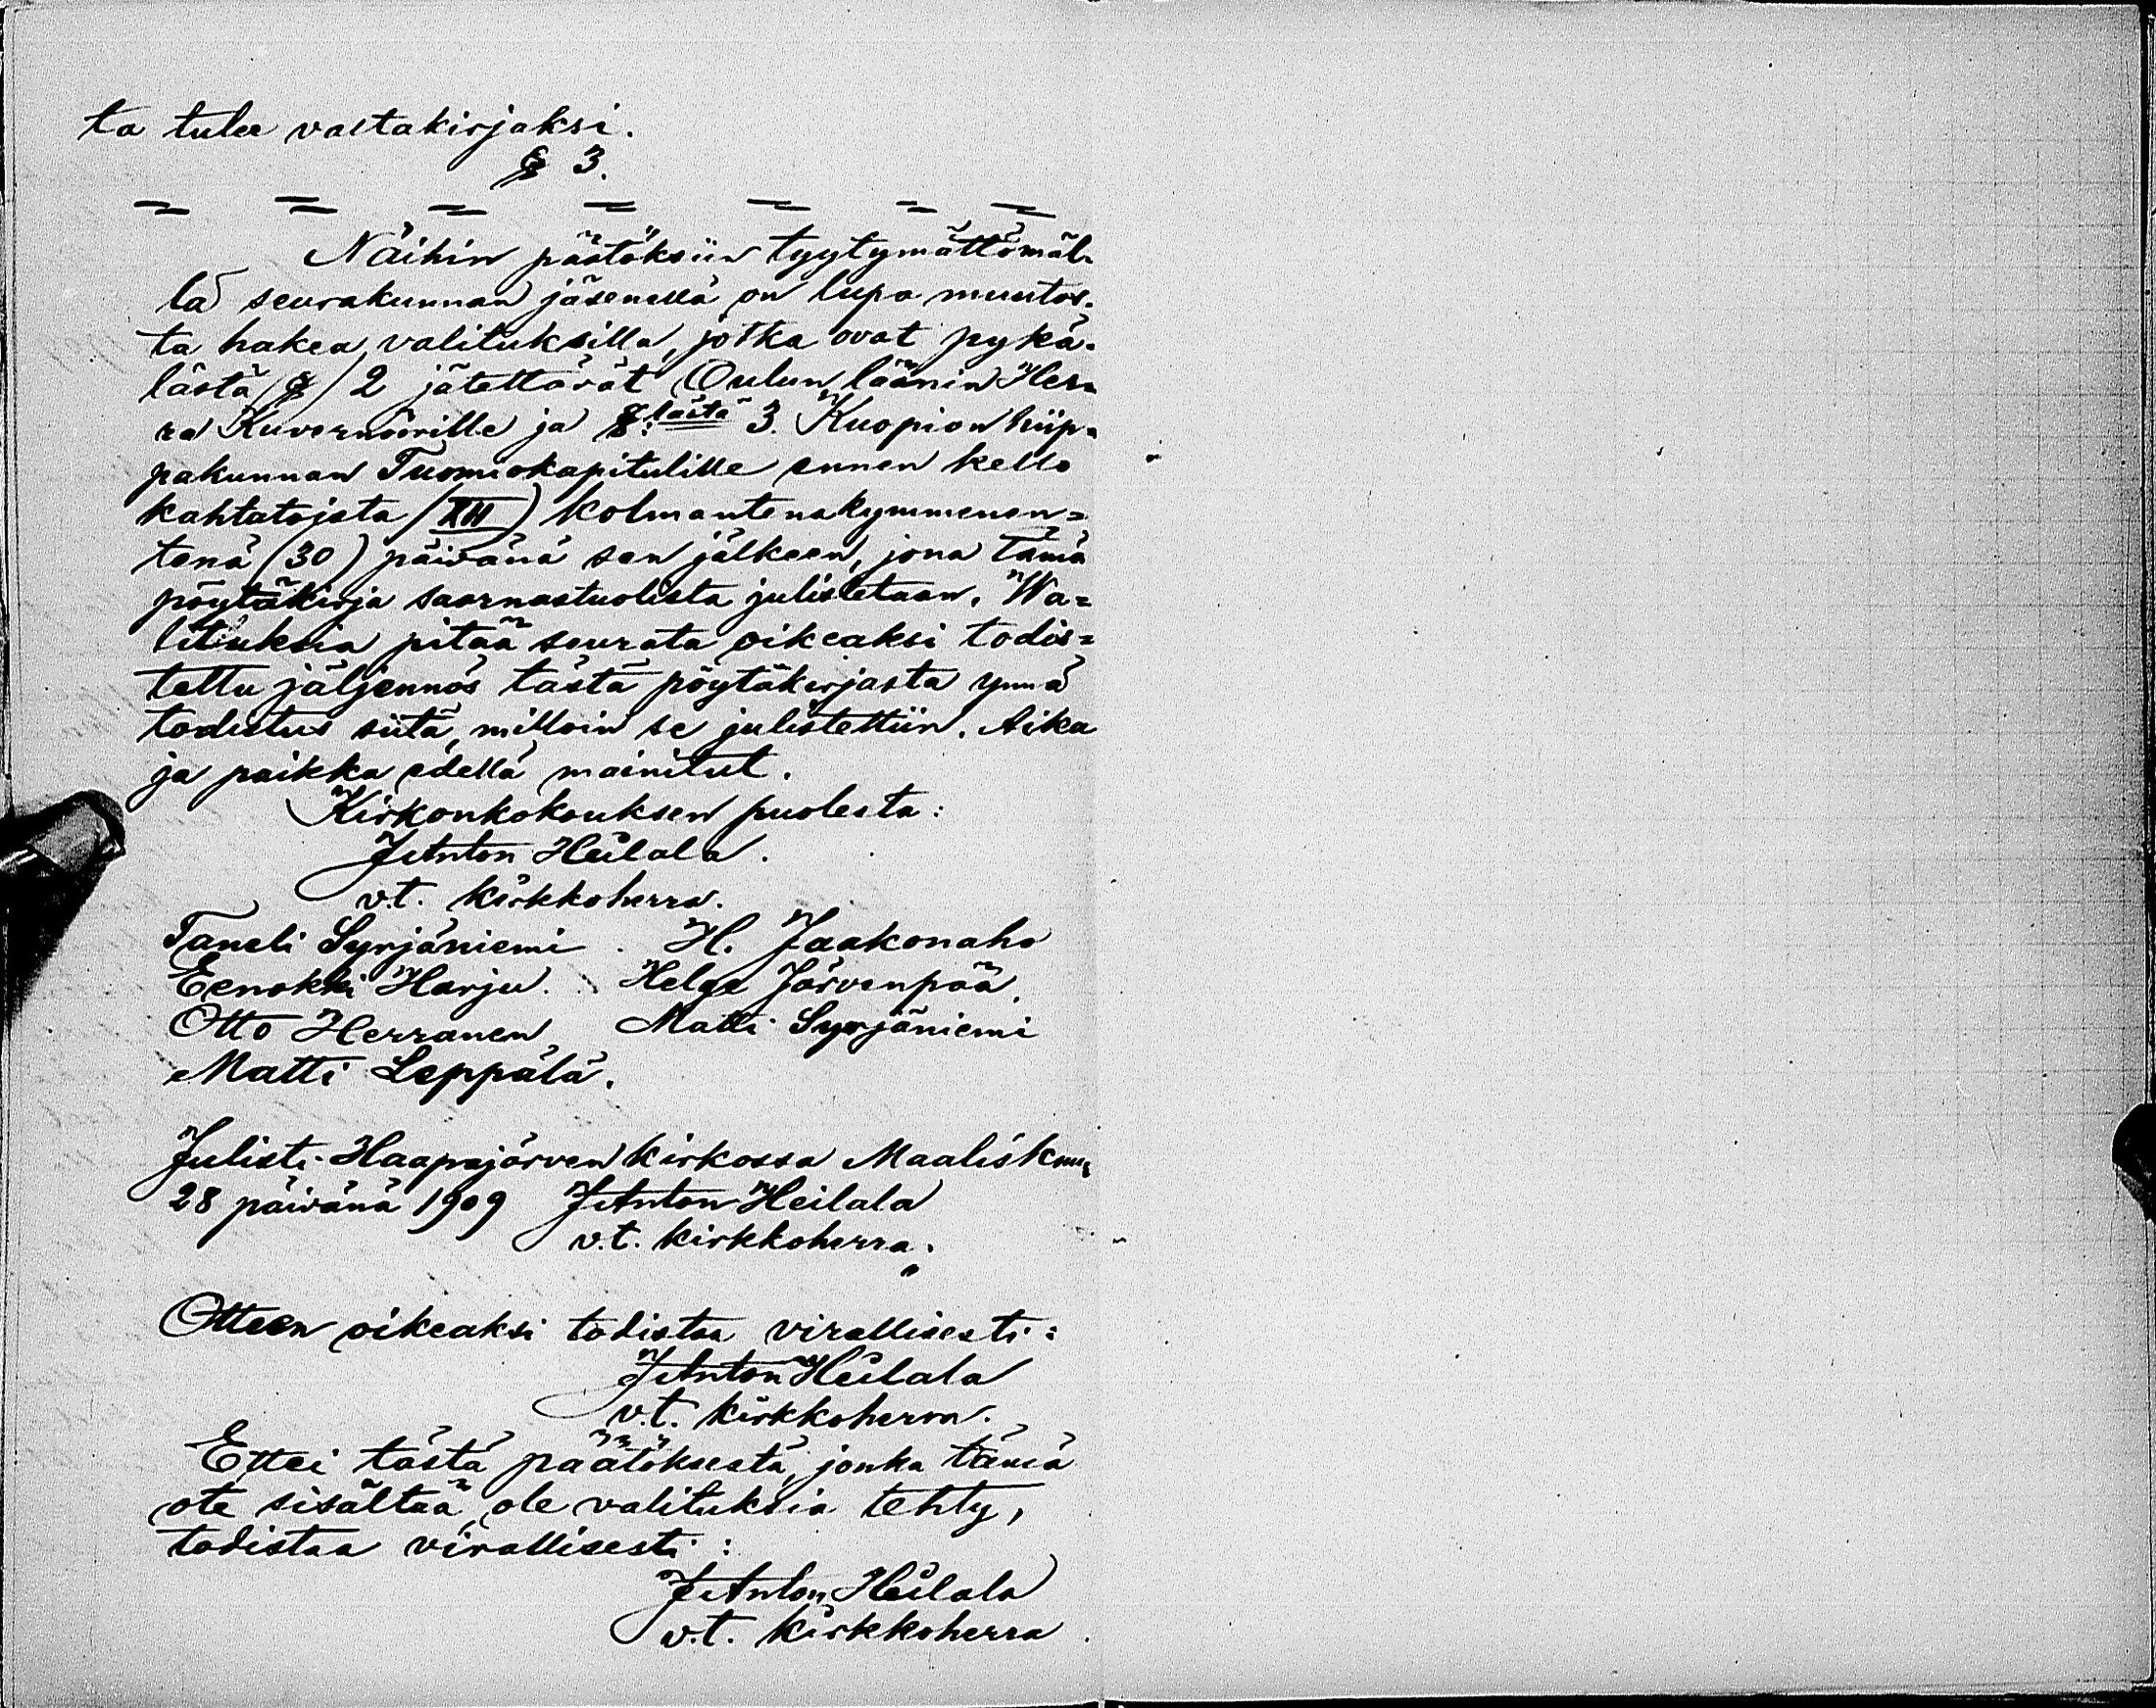 ta tulee vastakirjaksi.
§ 3.
= = = = = = =
Näihin päätöksiin tyytymättömäl-
lä seurakunnan jäsenellä on lupa muutos-
ta hakea valituksilla, jotka ovat pykä-
lästä (§) 2 jätettävät Oulun läänin Her-
ra Kuvernöörille ja §:lästä 3. Kuopion hiip-
pakunnan Tuomiokapitulille ennen kello
kahtatoista (XII) kolmantenakymmenen=
tenä (30) päivänä sen jälkeen, jona tämä
pöytäkirja saarnastuolista julistetaan. Wa=
lituksia pitää seurata oikeaksi todis=
tettu jäljennös tästä pöytäkirjasta ynnä
todistus siitä, milloin se julistettiin. Aika
ja paikka edellä mainitut.
Kirkonkokouksen puolesta:
J Anton Heilala.
v.t. kirkkoherra.
Taneli Syrjäniemi. H. Jaakonaho
Eenokki Harju. Helge Järvenpää.
Otto Herranen Matti Syrjäniemi
Matti Leppälä.
Julisti Haapajärven kirkossa Maalisk
28 päivänä 1909 J Anton Heilala
v.t. kirkkoherra.
Otteen oikeaksi todistaa virallisesti:
J Anton Heilala
v.t. kirkkoherra.
Ettei tästä päätöksestä, jonka tämä
ote sisältää, ole valituksia tehty,
todistaa virallisesti:
J Anton Heilala
v.t. kirkkoherra.